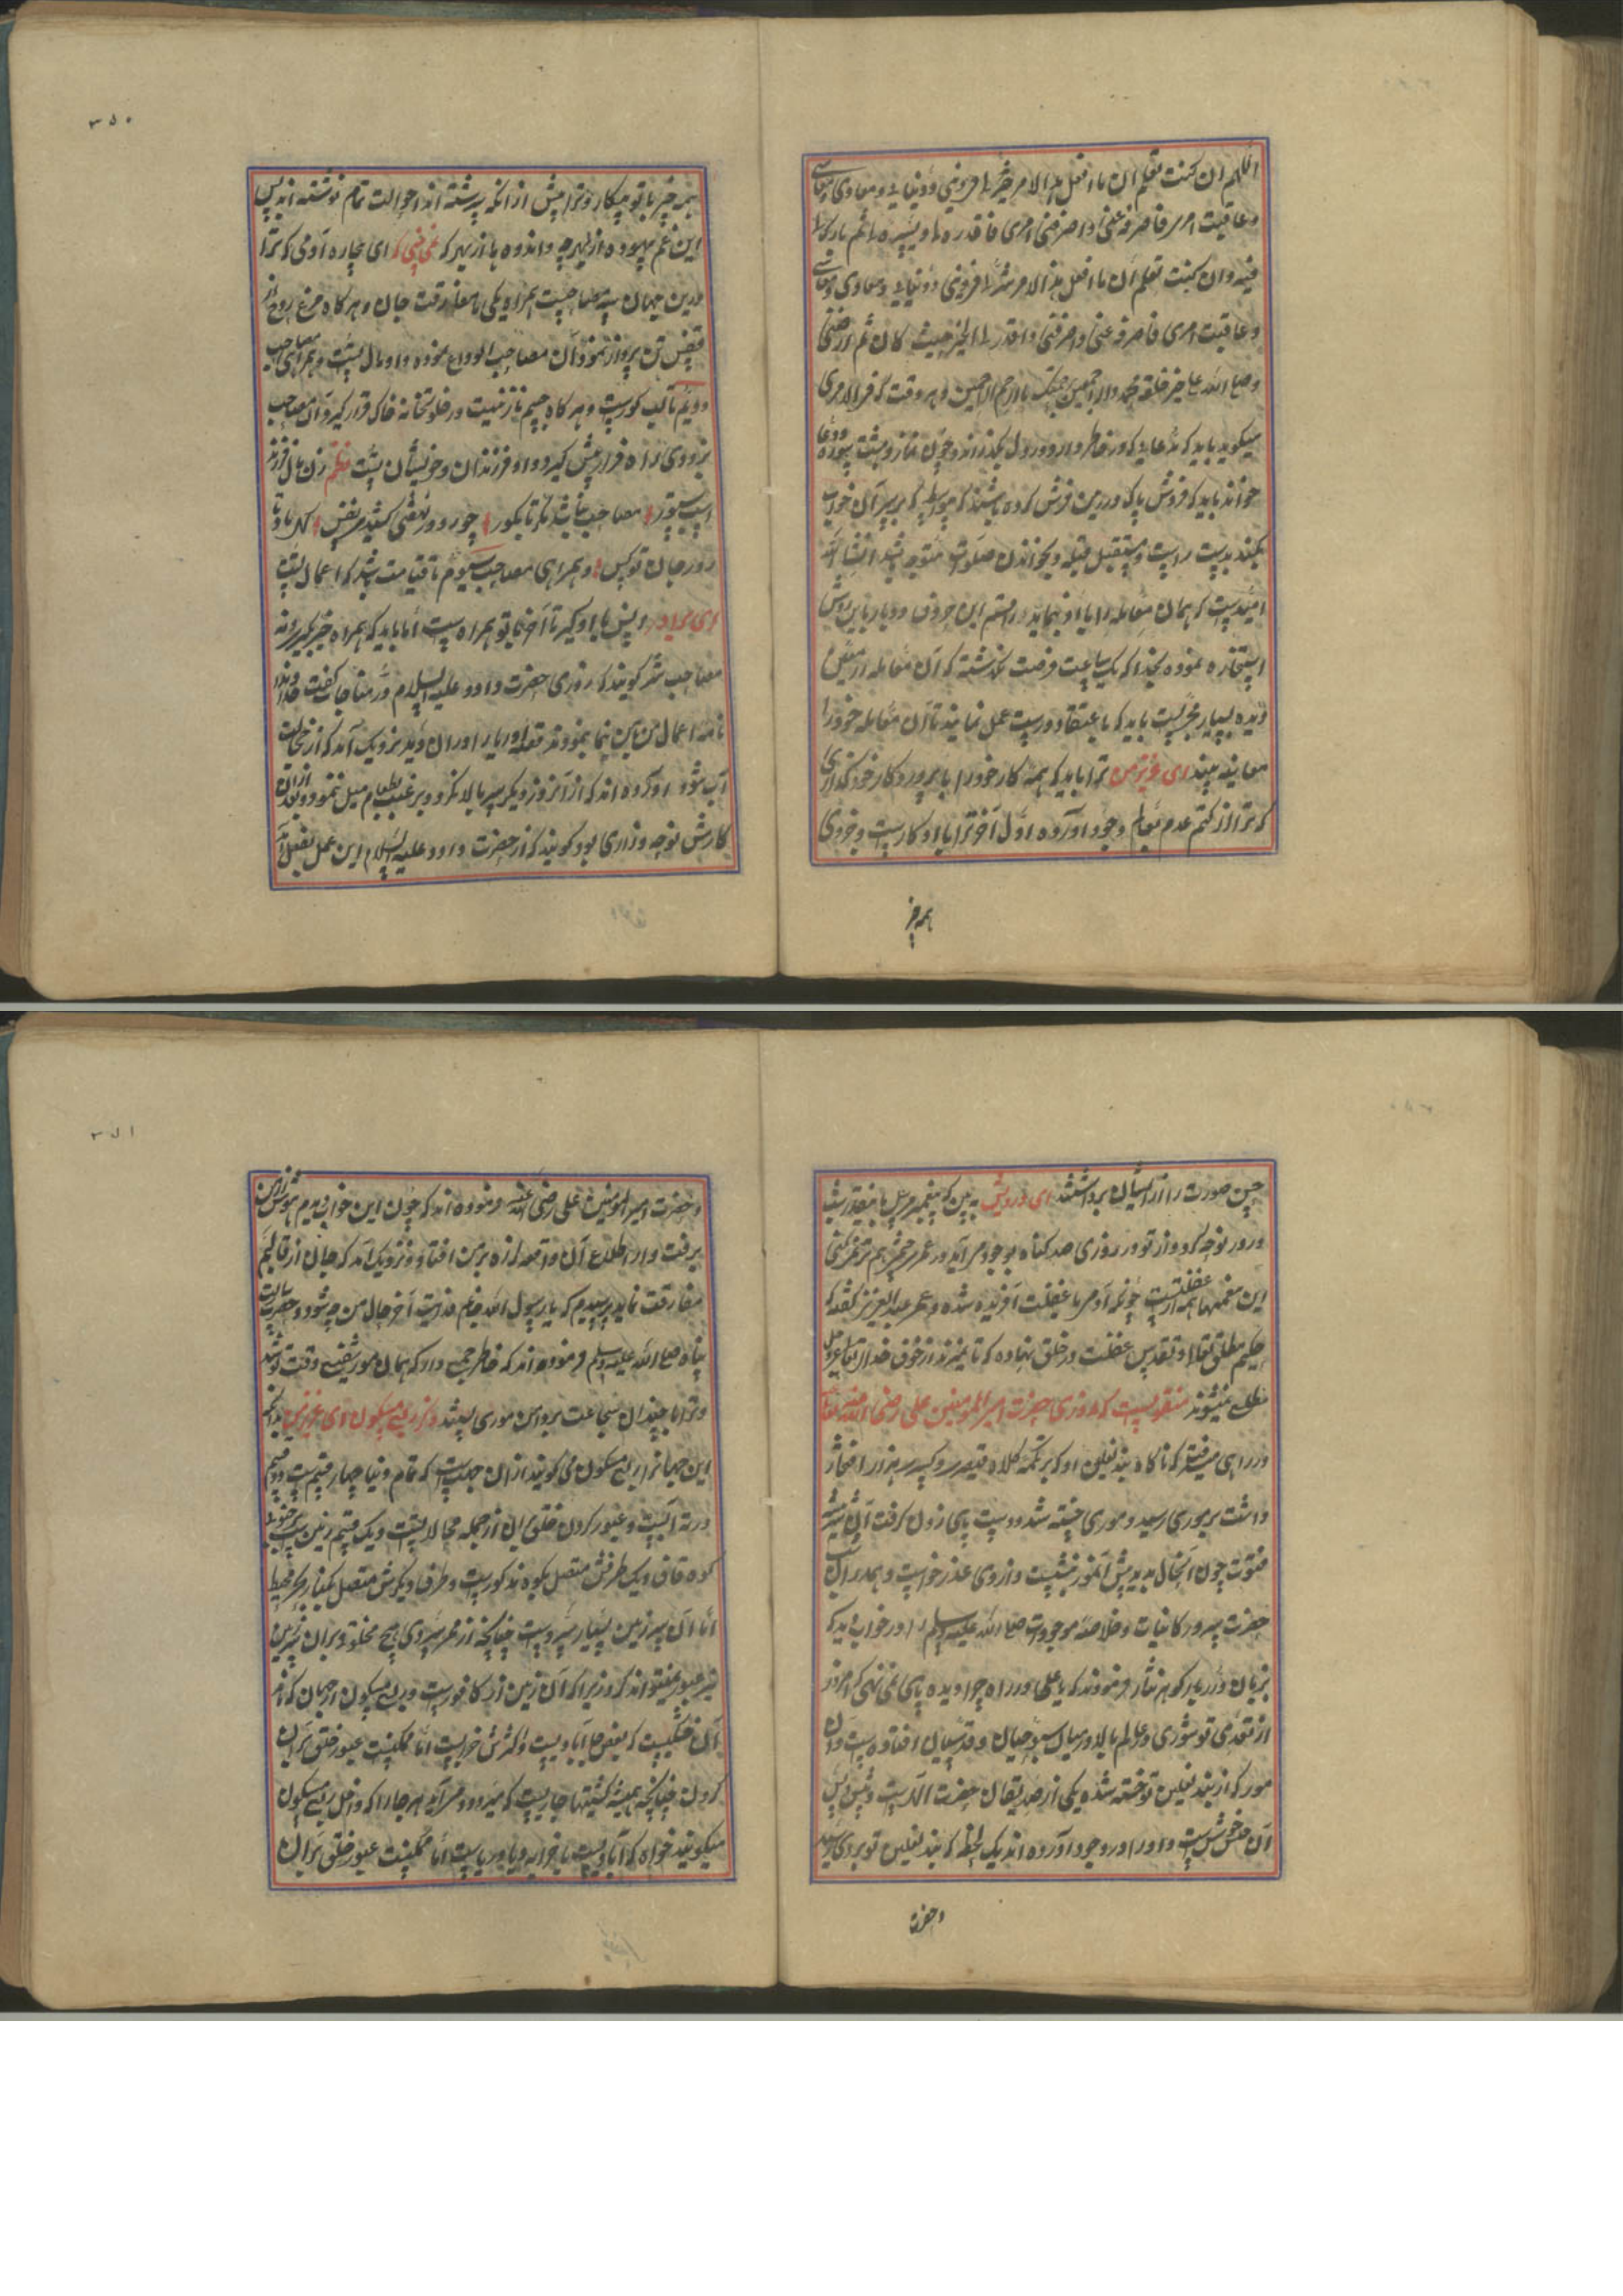 اللهم ان کنت تعلم ان ما افعل هذا الامر خیر لی فی دینی و دنیایی و معادی و معاشی
و عاقبت امری فاصرفه عنی و اصرفنی امری فاقدره لی و یسره لی ثم بارک لی
فیه وان کنت تعلم ان ما افعل هذا الامر شر لی فی دینی و دنیایی و معادی و معاشی
و عاقبت امری فاصرفه عنی و اصرفنی و اقدر لی الخیر حیث کان ثم ارضنی
و صلی الله علی خیر خلقه محمد و اله اجمعین برحمتک یا ارحم الراحمین و هر وقت که هذا الامری
میگوید باید که مدعایی که در خاطر دارد در دل بگذراند و چون نماز و
خواند باید که فروش پاک در زمین فرش کرده باشند که بر سر آن خواب
بکند بدست راست و مستقبل قبله و بخواندن صلوت متوجه شد انشاالله
امیدست که همان معامله را با او نمایند راقم این حروف دو بار باین روش
استخاره نموده بخدا که یک ساعت فرصت نگذشته که آن معامله
دیده بسیار مجربست باید که باعتقاد درست عمل نمایند تا آن معامله خود را
معاینه بیند ای عزیز من ترا باید که همه کار خود را با پروردکار خود گذاری
که ترا از کتم عدم بعالم وجود آورده اول آخر ترا با او کارست و خردی
همه چیز
۳۵۰
همه چیز با تو چکار و ترا پیش از آنکه سرشته اند احوالت تمام نوشته اند پس
این غم بیهوده از بهر چه و اندوه ها از بهر که ای بیچاره آدمی که ترا
درین جهان سه مصاحبست همراه یکی تا مفارقت جان و هر کاه مرغ روح از
قفس تن پرواز نمود آن مصاحب الوداع نموده و او مال تست و همراهی مصاحب
دویم تا لب کورست و هر کاه جسم نازنینت در خلوتخانه خاک قرار کیرد آن مصاحب
بزودی راه فرار پیش کیرد و او فرزندان و خویشان تست نظم زن مال فرزند
اسب ستور مصاحب باشد تا بکور چو رد و نفسی کشیدم نفس
زور جان تو بس و همراهی مصاحب سیوم تا قیامت باشد که اعمال تست
ای برادر پس با او کیر تا آخر با تو همراه ست اما باید که همراه خیر بکیر و نه
مصاحب شر کویند که روزی حضرت داود علیه السلام در مناجات کفت خداوندا
نامه اعمال من بمن بنما بنمودند نزدیک آمد که از خجالت
آب شود آورده اند که از آنروز دیکر سر بالا نکرد و برغبت طعام میل ننمود و بعد از آن
کارش نوحه و زاری بود کویند که از حضرت داود علیه السلام این عمل بفعل آمد
چین صورت را از ایشان برداشتند ای درویش ببین که پیغمبر مرسل با
و در نوحه کرد و از تو در روزی صد کناه بوجود می آید و در عمر چشم هم تر نمی کنی
این همه از غفلتست چونکه آدمی با غفلت آفریده شده و عمر عبدالعزیز کفته که
حکیم مطلق تعالی و تقدس غفلت در خلق نهاده که تا نمیرند از خوف خدای تعالی عز و جل
منقولست که روزی حضرت امیرالمومنین علی رضی الله عنه
در راهی میرفت که ناکاه بند نعلین او که بر تکمه کلاه قیصر و کسری هزار افتخار
داشت بر موری رسید و موری خسته شد و دست پای ز ول کرفت آن شیر بیشه
فتوت چون آنحال بدید پیش آنمور بنشست و از وی عذر خواست و همدران شب
حضرت سرور کاینات و خلاصه موجودات صلی الله علیه و سلم را در خواب دید که
بزبان درربار کوهر نثار فرمودند که یا علی در راه چرا دیده پای نمی نهی که امروز
از تعدی تو شوری در عالم بالا در میان سبوحیان و قدسیان افتاده است و آن
مور که از بند نعلین تو خسته شده یکی از صدیقان حضرت اله ست و پیش و پس
آن خوش ست و او را در وجود آورده اند یک لحظه که بند نعلین تو بر وی رسید
و حضرت
۳۵۱
و حضرت امیرالمومنین علی رضی الله عنه فرموده اند که چون این خواب دیدم هوش از من
برفت و از اطلاع آن واقعه لرزه بر من افتاد و نزدیک آمد که جان از قالبم
مفارقت نماید پرسیدم که یا رسول الله آخر حال من چه شود و حضرت رسالت
پناه صلی الله علیه و سلم فرموده اند که خاطر جمع دار که همان مور شفیع وقت تو شد
و ترا با چندان شجاعت بر و این موری بیند ذکر ربع مسکون ای عزیز من بدانکه
این جهانرا ربع مسکون می کویند از آن جهتست که تمام دنیا چهار قسم ست دو قسم
در ته آبست و عبور کردن خلق بر آن از جمله محالاتست و یک قسم زمین
کوه قاف و یک طرفش متصل بکوه مذکورست و طرف دیکرش متصل بکنار بحر محیط
اما آن سرزمین بسیار سردست چنانچه از فرط سردی هیچ مخلوق بر آن سرزمین
نمیتواند کرد زیرا که آن زمین از کافورست و ربع مسکون از جهان که
آن خشکیست که بعضی جا آبادیست و اکثرش خرابست اما ممکنست عبور خلق بر آن
کردن چنانچه همیشه کشتیها جاریست که میرود و می آید هر جا را که داخل ربع مسکون
میکویند خواه که آبادیست یا خرابه و یا دریاست اما ممکنست عبور خلق بر آن